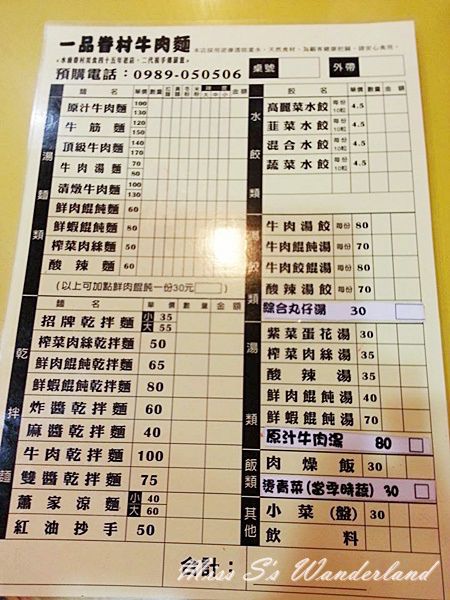 一品眷村牛肉麵
預購電話：0989-050506
桌號
外帶
湯麵類
麵名 單價 數量 金額
原汁牛肉麵 100 130
牛筋麵 120 150
頂級牛肉麵 140 170
牛肉湯麵 50 70
清燉牛肉麵 100 130
鮮肉餛飩麵 60
鮮蝦餛飩麵 80
榨菜肉絲麵 50
酸辣麵 60
(以上可加點鮮肉餛飩一份30元)
乾拌麵
麵名 單價 數量 金額
招牌乾拌麵 小 35 大 55
榨菜肉絲乾拌麵 50
鮮肉餛飩乾拌麵 65
鮮蝦餛飩乾拌麵 80
炸醬乾拌麵 60
麻醬乾拌麵 40
牛肉乾拌麵 100
雙醬乾拌麵 75
蕭家涼麵 小 40 大 60
紅油抄手 50
水餃類
餃名 單價 數量 金額
高麗菜水餃 每份10粒 4.5
韭菜水餃 每份10粒 4.5
混合水餃 每份10粒 4.5
蔬菜水餃 每份10粒 4.5
湯餃類
牛肉湯餃 每份 80
牛肉餛飩湯 每份 70
牛肉餃餛湯 每份 80
酸辣湯餃 每份 70
綜合丸仔湯 30
湯類
紫菜蛋花湯 30
榨菜肉絲湯 35
酸辣湯 35
鮮肉餛飩湯 50
鮮蝦餛飩湯 70
原汁牛肉湯 80
飯類
肉燥飯 30
燙青菜(當季時蔬) 30
其他
小菜(盤) 30
飲料
合計：
Miss S's Wanderland